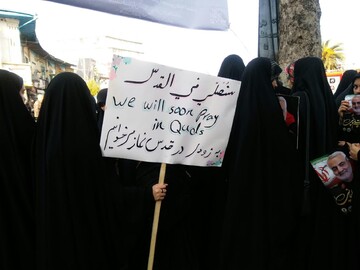 سنصلي في القدس
We will soon Pray
in Quds
به زودی در قدس نماز میخوانیم